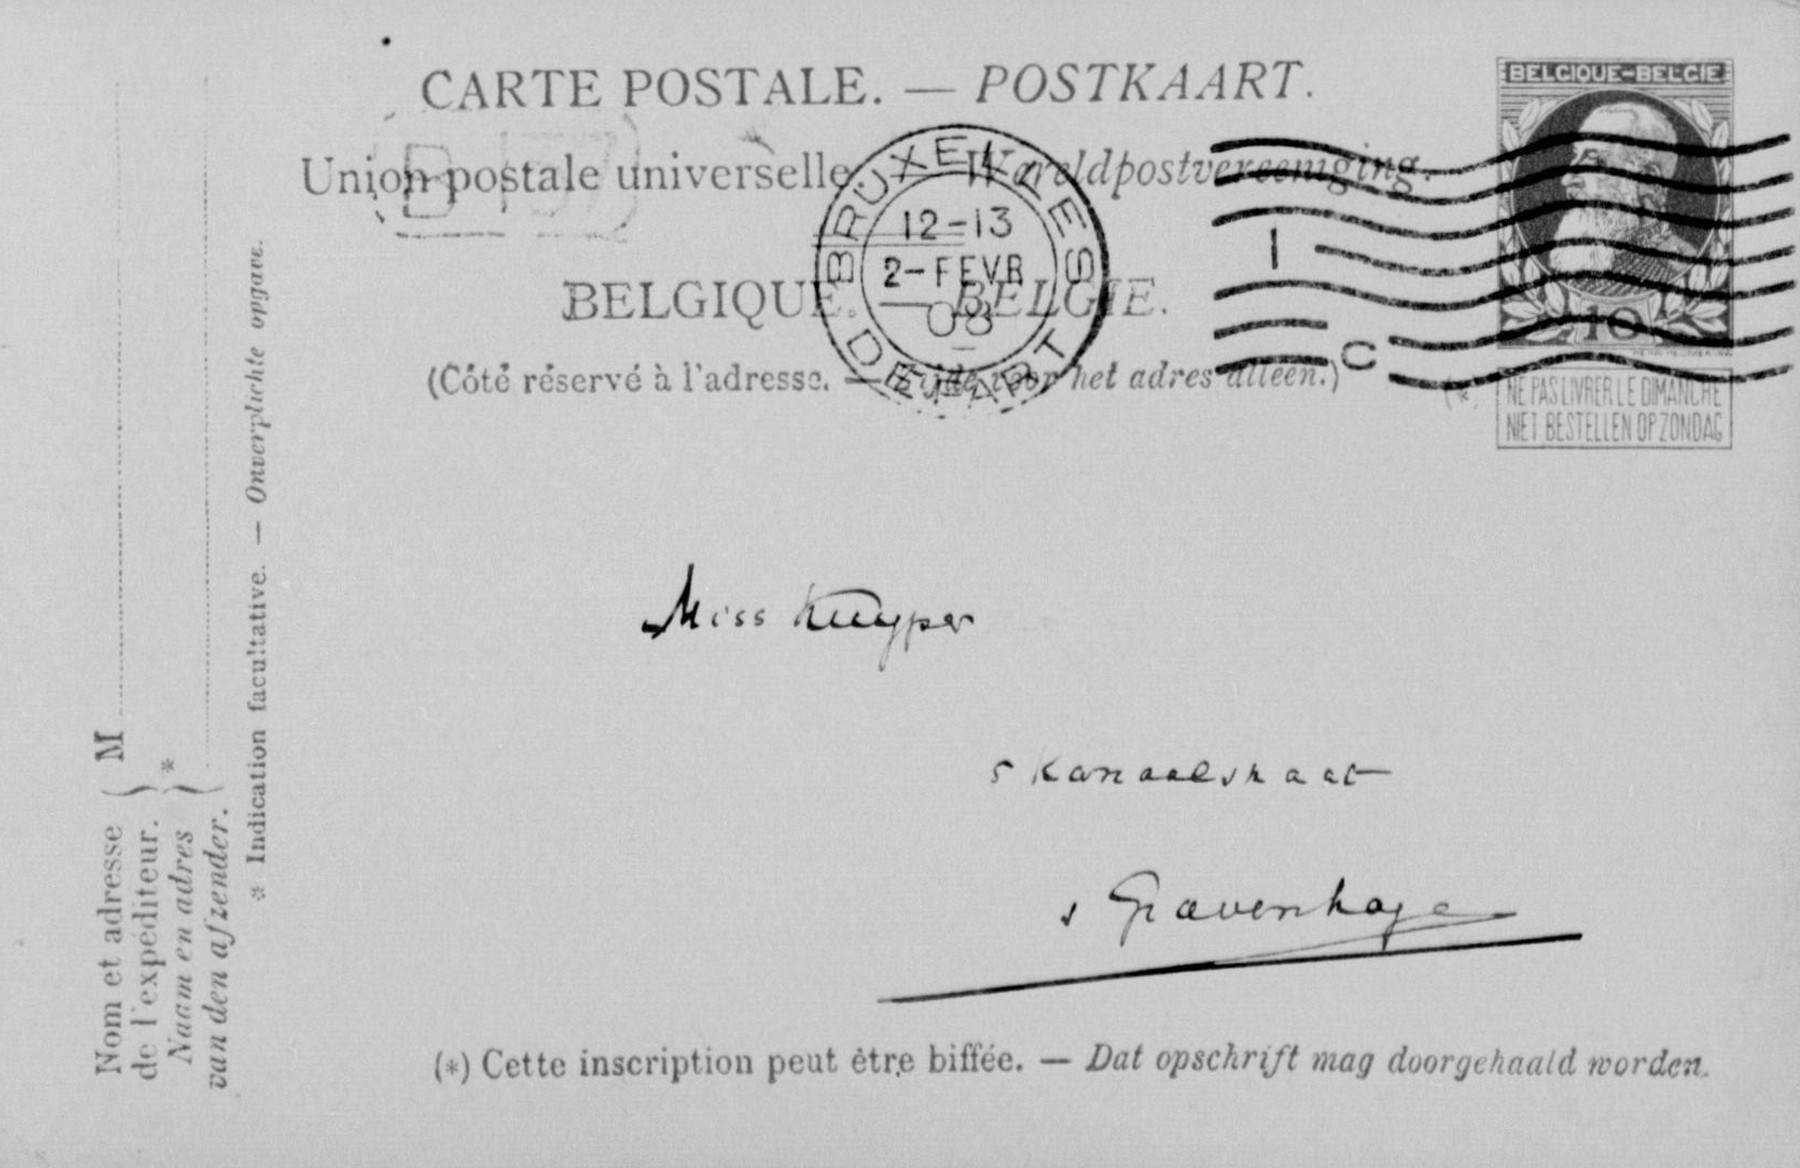 CARTE POSTALE. — POSTKAART.
Union postale universelle Wereldpostvereeniging.
BELGIQUE. BELGIE.
(Côté réservé à l'adresse. — Zijde voor het adres alleen.)
BELGIQUE-BELGIE
10
(*)
NE PAS LIVRER LE DIMANCHE
NIET BESTELLEN OP ZONDAG
BRUXELLES
12-13
2-FEVR
08
DEPART
1
C
B 57
Miss Kuyper
5 Kanaalstraat
s Gravenhage
(*) Cette inscription peut être biffée. — Dat opschrift mag doorgehaald worden.
Nom et adresse
de l'expéditeur.
M
Naam en adres
van den afzender.
*
* Indication facultative. — Onverplichte opgave.